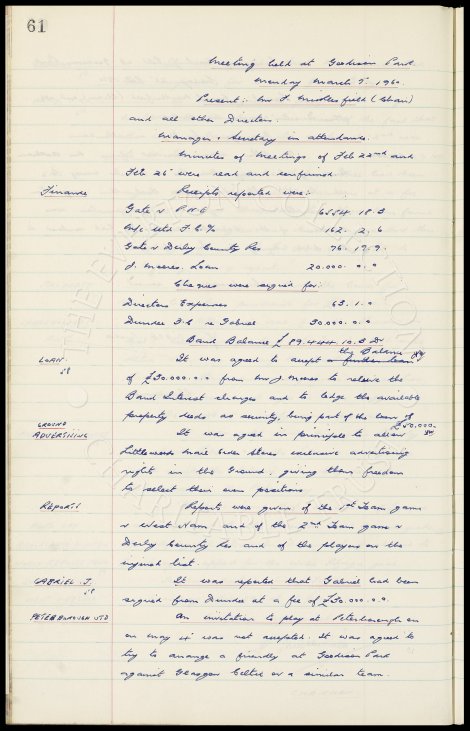 61
Meeting held at Goodison Park
Monday March 7. 1960.
Present:- Mr F. Micklesfield (Chair)
and all other Directors.
Manager & Secretary in attendance.
Minutes of Meetings of Feb 22nd and
Feb 26 were read and confirmed.
Finance Receipts reported were:-
Gate v P.N.E 6554. 18. 3
M/c Utd F.C. % 162. 2. 6
Gate v Derby County Res 76. 17. 9.
J. Moores. Loan 20.000. 0. 0
Cheques were signed for:-
Directors Expenses 63. 1. 0
Dundee F.C re Gabriel 30.000. 0. 0
Bank Balance £ 89.444. 10. 3 Dr
the Balance
LOAN. It was agreed to accept a further loan
of £30.000. 0. 0 from Mr J. Moores to relieve the
Bank Interest charges and to lodge the available
property deeds as security, being part of the loan of
£50,000.
GROUND ADVERTISING It was agreed in principle to allow
Littlewoods Mail Order Stores exclusive advertising
rights in the Ground, giving them freedom
to select their own positions
Reports Reports were given of the 1st Team game
v West Ham and of the 2nd Team game v
Derby County Res and of the players on the
injured list.
GABRIEL. J. It was reported that Gabriel had been
signed from Dundee at a fee of £30.000. 0. 0.
PETERBOROUGH UTD An invitation to play at Peterborough on
on May 4 was not accepted. It was agreed to
try to arrange a friendly at Goodison Park
against Glasgow Celtic or a similar team.